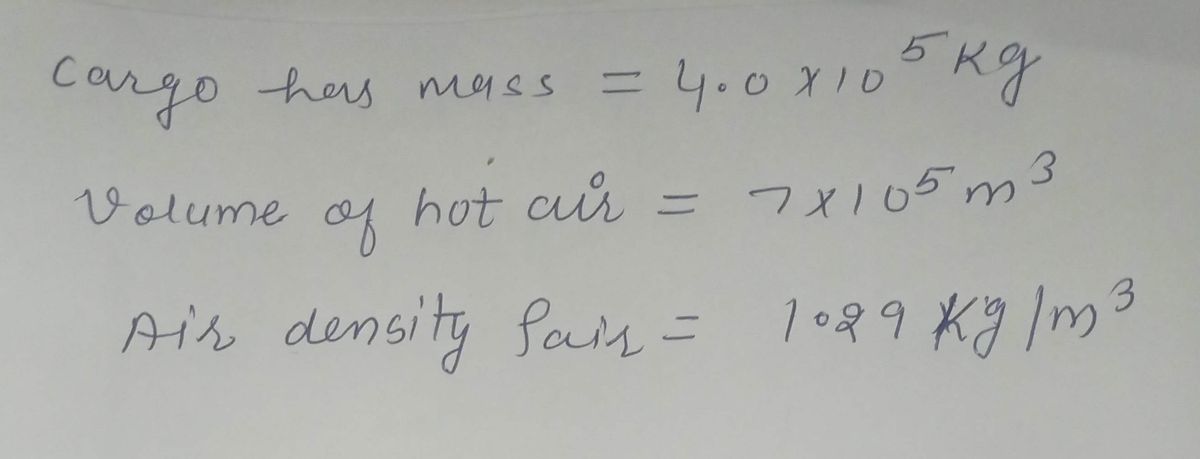 Cargo has mass = 4.0 x 10⁵ Kg
Volume of hot air = 7 x 10⁵ m³
Air density ρair = 1.29 Kg/m³